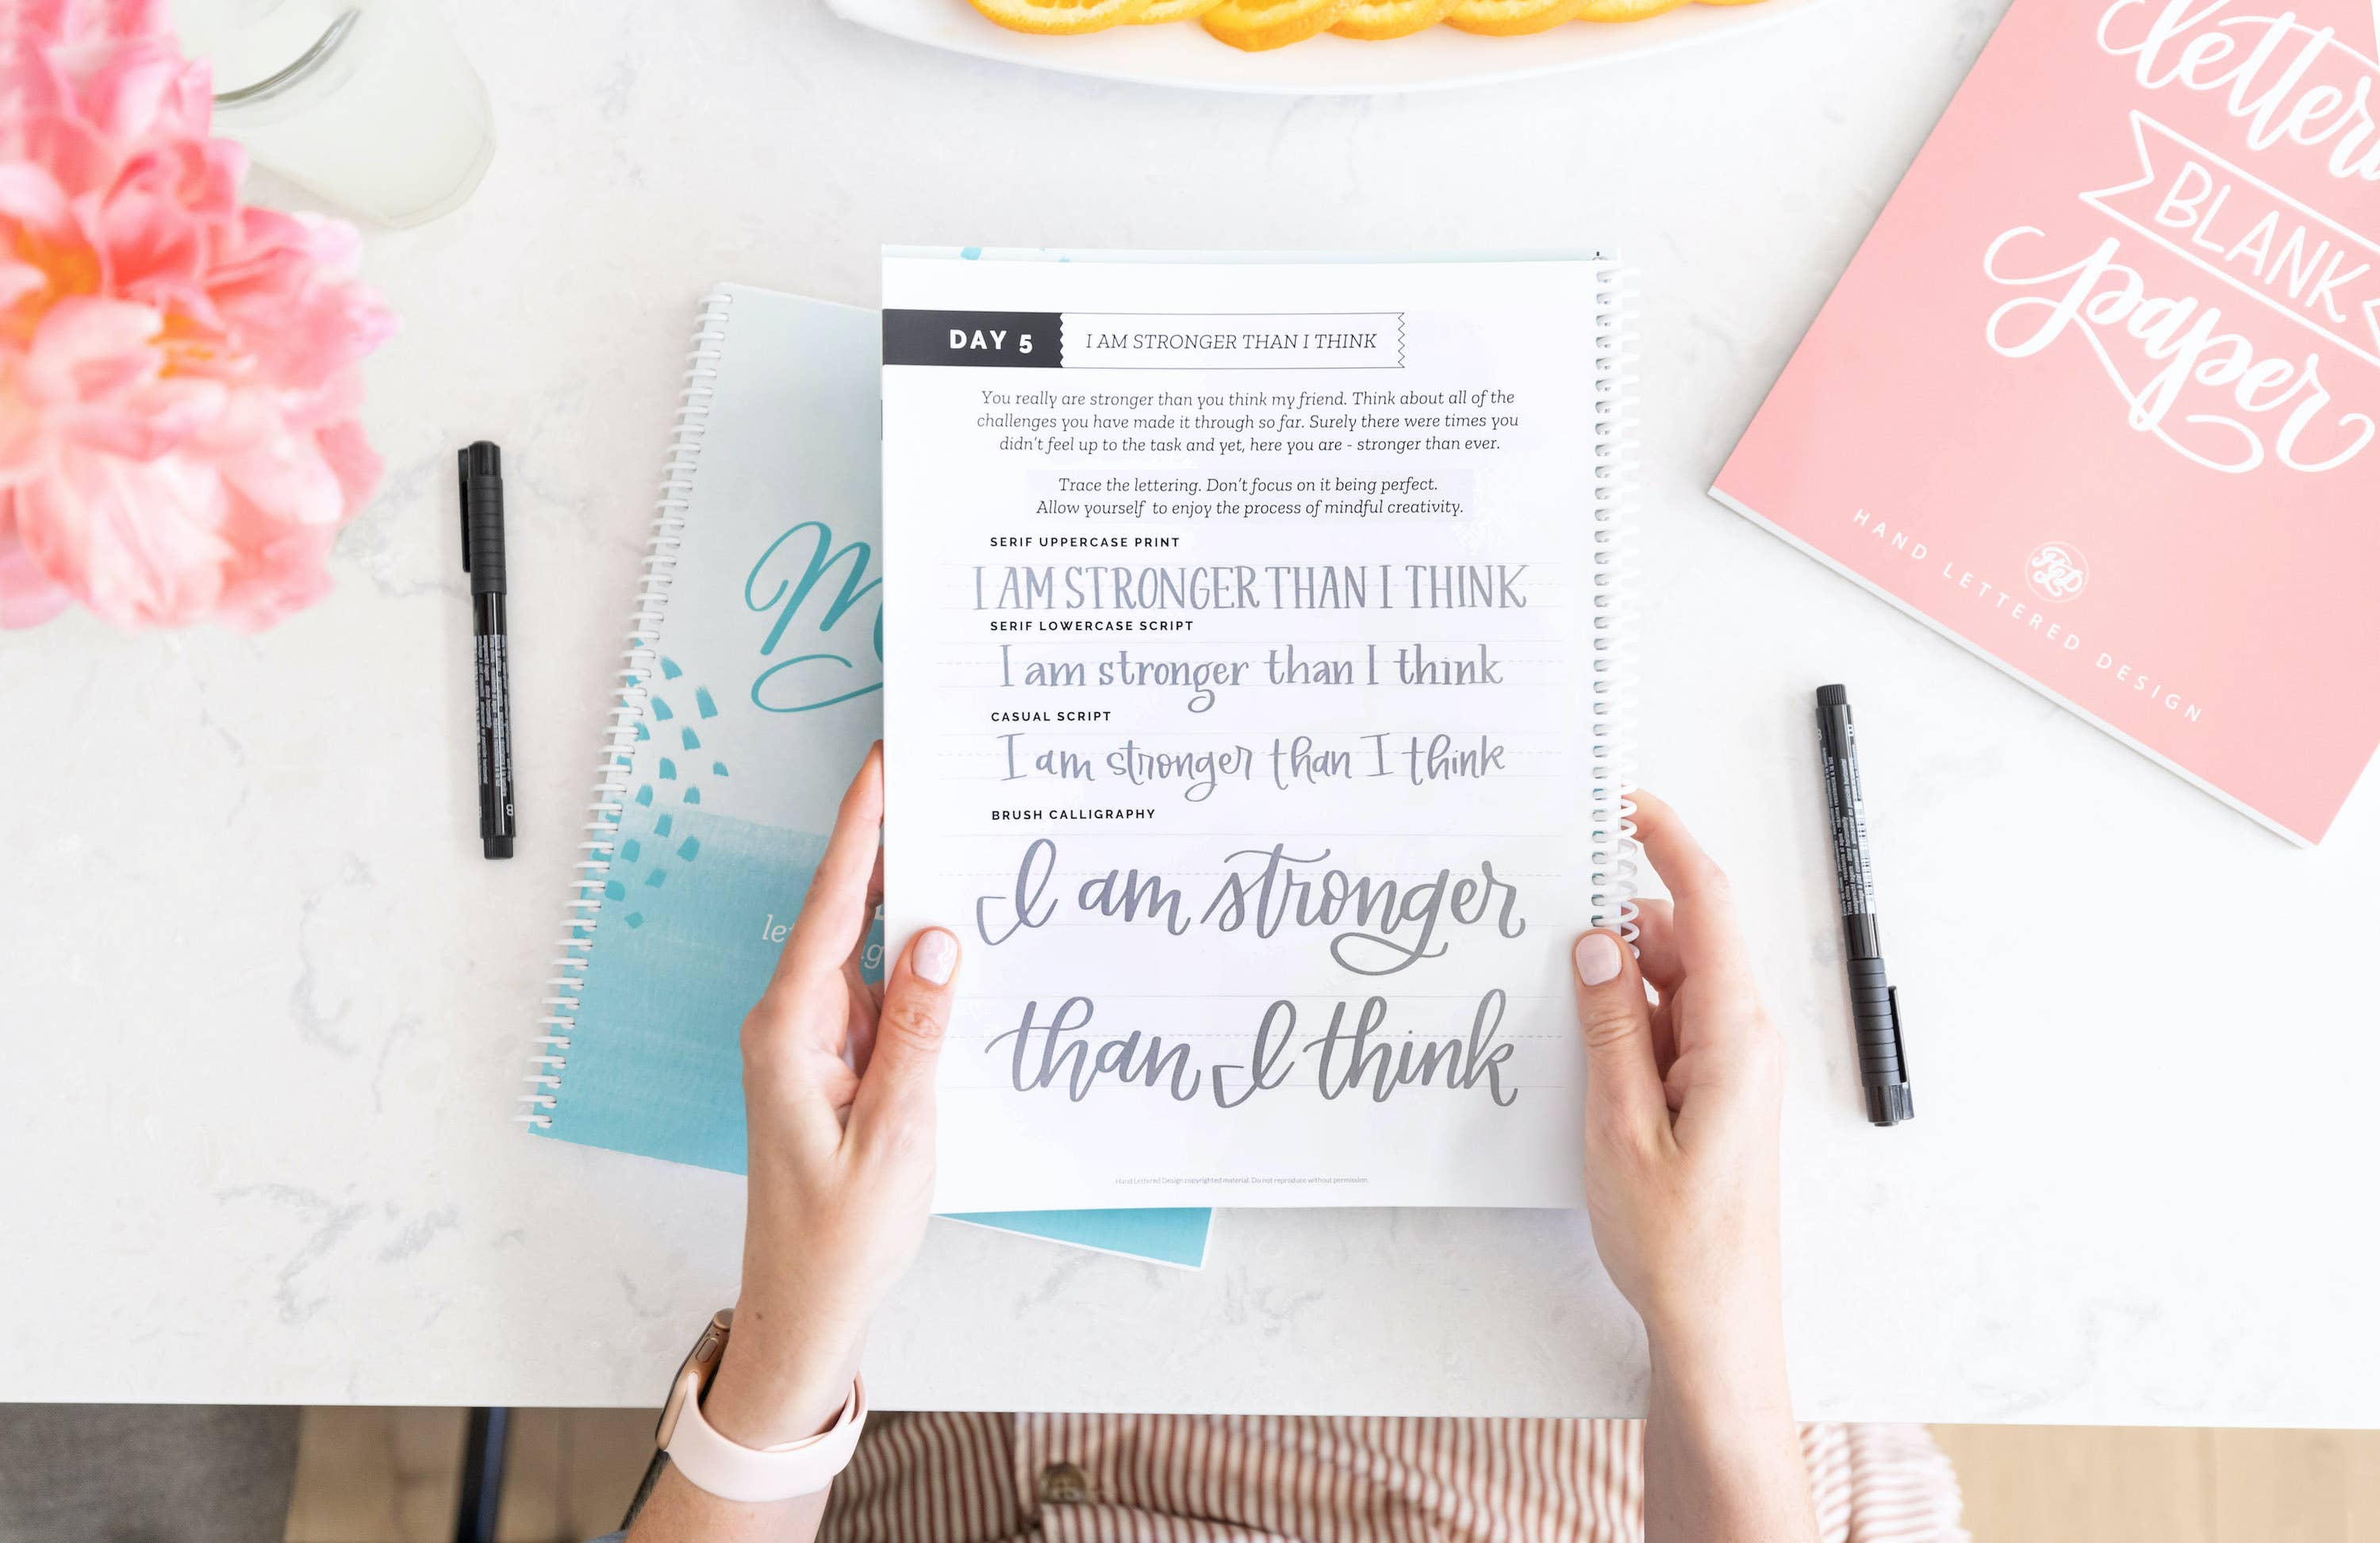 DAY 5
I AM STRONGER THAN I THINK
You really are stronger than you think my friend. Think about all of the
challenges you have made it through so far. Surely there were times you
didn't feel up to the task and yet, here you are - stronger than ever.
Trace the lettering. Don't focus on it being perfect.
Allow yourself to enjoy the process of mindful creativity.
SERIF UPPERCASE PRINT
I AM STRONGER THAN I THINK
SERIF LOWERCASE SCRIPT
I am stronger than I think
CASUAL SCRIPT
I am stronger than I think
BRUSH CALLIGRAPHY
I am stronger
than I think
Hand Lettered Design copyrighted material. Do not reproduce without permission.
BLANK
paper
HLD
HAND LETTERED DESIGN